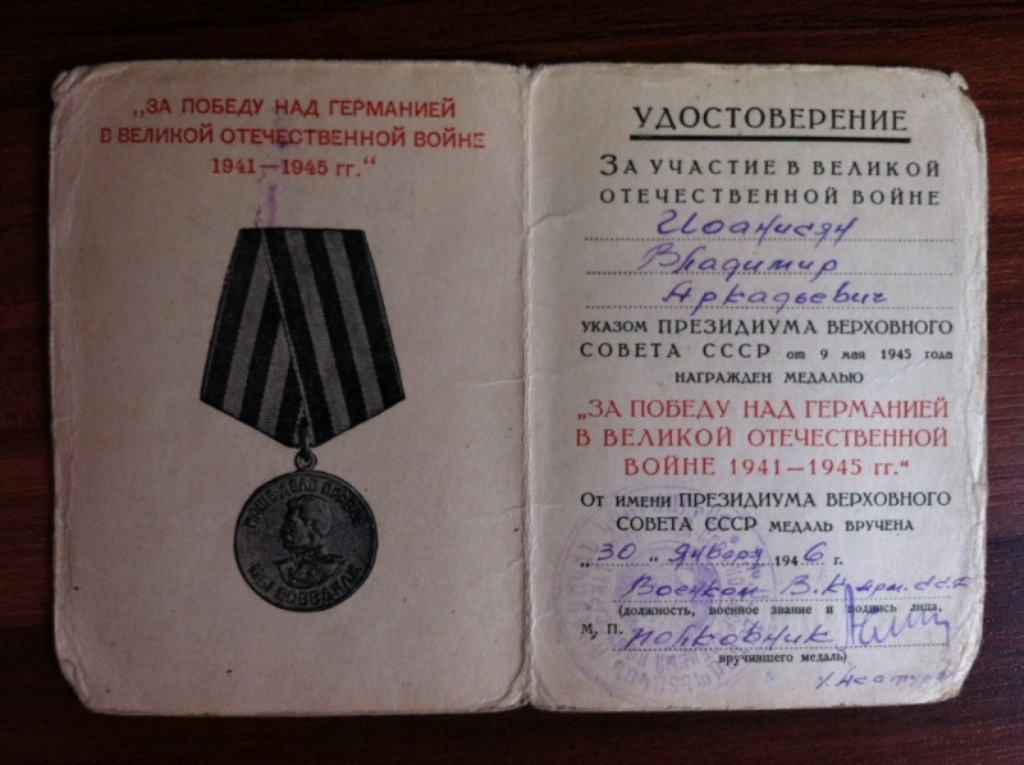 „ЗА ПОБЕДУ НАД ГЕРМАНИЕЙ
В ВЕЛИКОЙ ОТЕЧЕСТВЕННОЙ ВОЙНЕ
1941—1945 гг.“
НАШЕ ДЕЛО ПРАВОЕ
МЫ ПОБЕДИЛИ
УДОСТОВЕРЕНИЕ
ЗА УЧАСТИЕ В ВЕЛИКОЙ
ОТЕЧЕСТВЕННОЙ ВОЙНЕ
Иоанисян
Владимир
Аркадьевич
УКАЗОМ ПРЕЗИДИУМА ВЕРХОВНОГО
СОВЕТА СССР от 9 мая 1945 года
НАГРАЖДЕН МЕДАЛЬЮ
„ЗА ПОБЕДУ НАД ГЕРМАНИЕЙ
В ВЕЛИКОЙ ОТЕЧЕСТВЕННОЙ
ВОЙНЕ 1941—1945 гг.“
От имени ПРЕЗИДИУМА ВЕРХОВНОГО
СОВЕТА СССР МЕДАЛЬ ВРУЧЕНА
„30“ января 1946 г.
Военком В.К Арм. ССР
(должность, военное звание и подпись лица,
М. П. полковник
вручившего медаль)